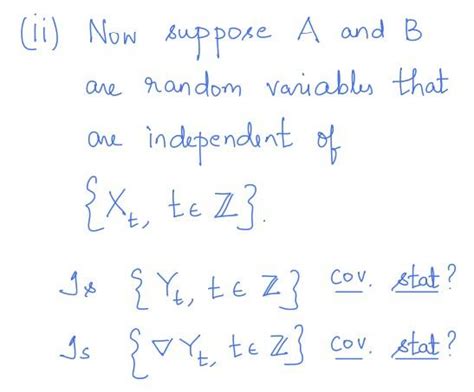 (ii) Now suppose A and B
are random variables that
are independent of
{X_t, t ∈ ℤ}.
Is {Y_t, t ∈ ℤ} cov. stat?
Is {∇Y_t, t ∈ ℤ} cov. stat?